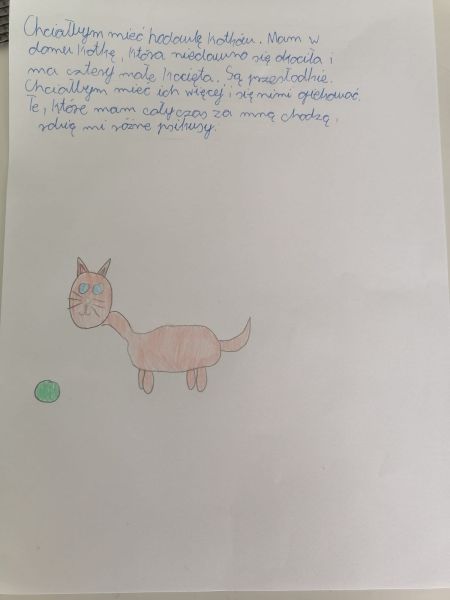 Chciałbym mieć hodowlę kotków. Mam w
domu kotkę, która niedawno się okociła i
ma cztery małe kocięta. Są przesłodkie.
Chciałbym mieć ich więcej i się nimi opiekować.
Te, które mam cały czas za mną chodzą,
robią mi różne psikusy.